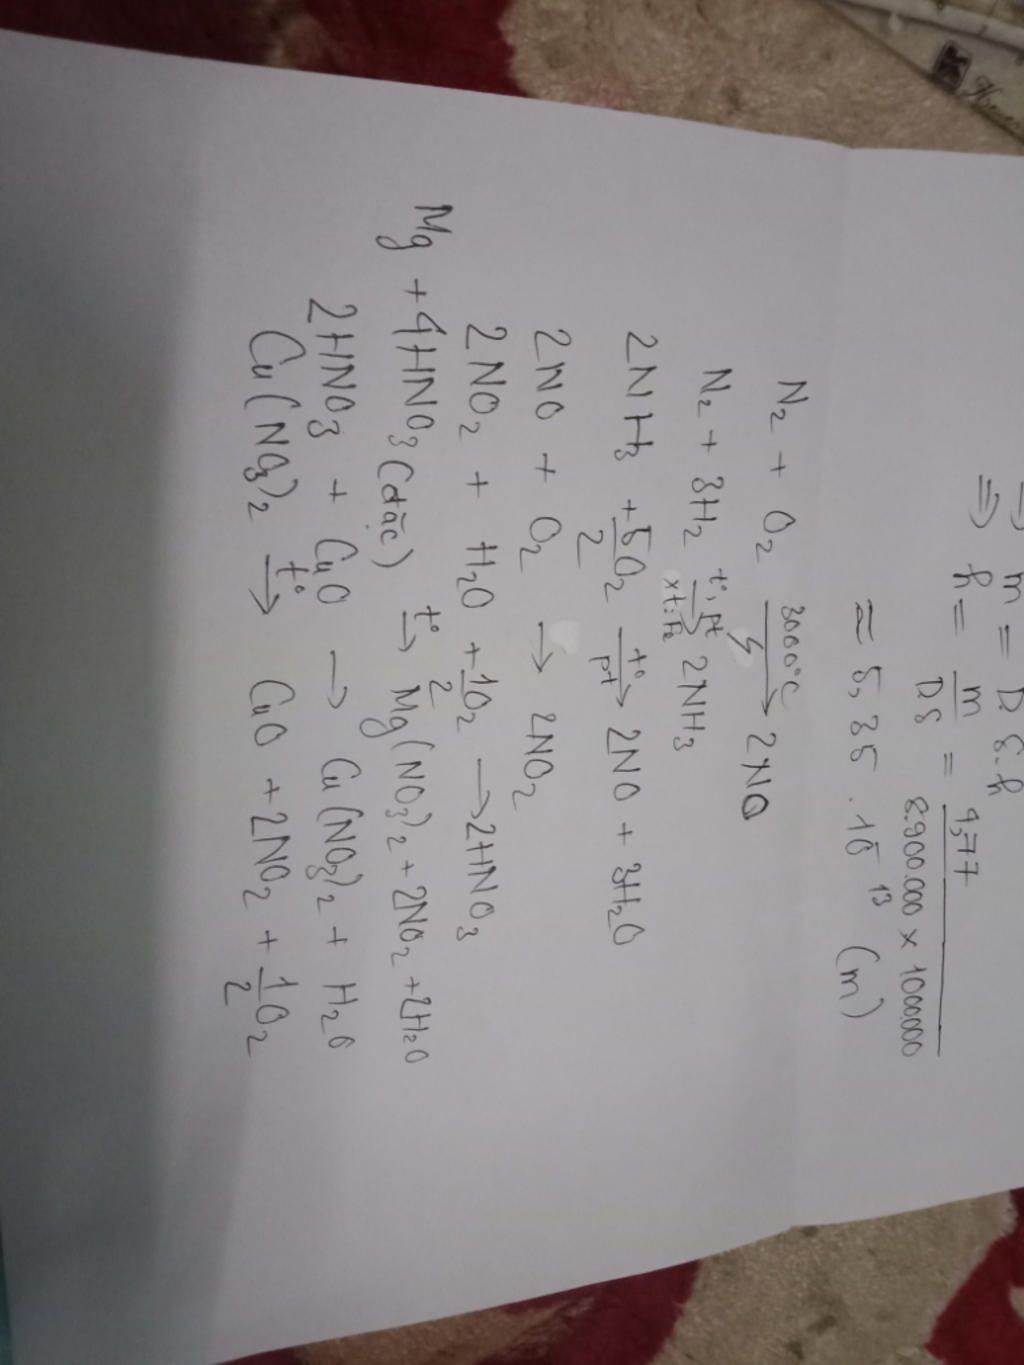 ⇒ m = D S.h
⇒ h = m/DS = 4,77/(8.900.000 x 1000000)
≈ 5,35 . 10⁻¹³ (m)
N₂ + O₂ 3000°C → 2NO
N₂ + 3H₂ t°, pt xt:Fe → 2NH₃
2NH₃ + 5/2 O₂ t° pt → 2NO + 3H₂O
2NO + O₂ → 2NO₂
2NO₂ + H₂O + 1/2 O₂ → 2HNO₃
Mg + 4HNO₃ (đặc) t° → Mg(NO₃)₂ + 2NO₂ + 2H₂O
2HNO₃ + CuO → Cu(NO₃)₂ + H₂O
Cu(NO₃)₂ t° → CuO + 2NO₂ + 1/2 O₂